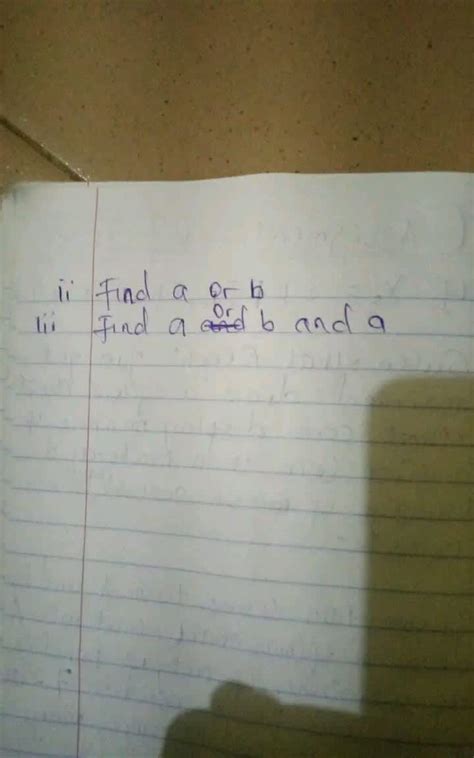 ii Find a or b
iii Find a or b and a